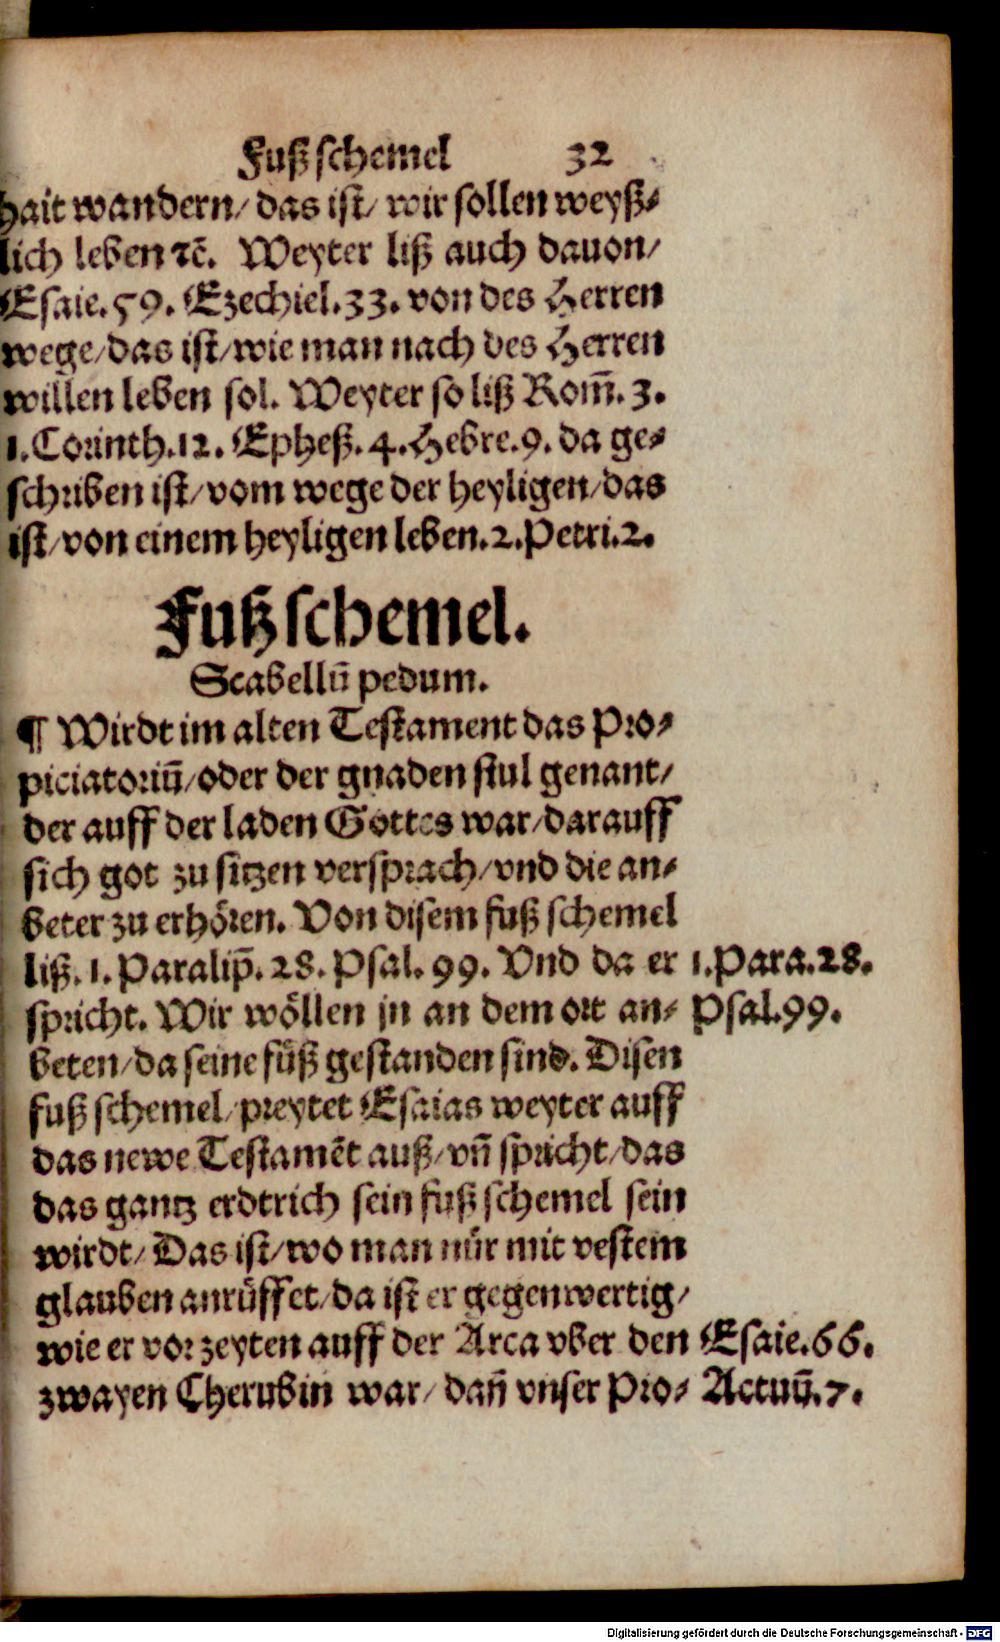 Fuß schemel 32
hait wandern/ das ist/ wir sollen weyß⸗
lich leben ⁊c̃. Weyter liß auch dauon/
Esaie.59. Ezechiel.33. von des Herren
wege/das ist/wie man nach des Herren
willen leben sol. Weyter so liß Rom̃.3.
1.Corinth.12. Epheß.4.Hebre.9. da ge⸗
schriben ist/vom wege der heyligen/das
ist/von einem heyligen leben.2.Petri.2.
Fuß schemel.
Scabellũ pedum.
¶ Wirdt im alten Testament das Pro⸗
piciatoriũ/oder der gnaden stul genant/
der auff der laden Gottes war/darauff
sich got zu sitzen versprach/vnd die an⸗
beter zu erhoͤren. Von disem fuß schemel
liß. 1. Paralip̃. 28. Psal. 99. Vnd da er 1.Para.28.
spricht. Wir woͤllen jn an dem ort an⸗ Psal.99.
beten/da seine fuͤß gestanden sind. Disen
fuß schemel/preytet Esaias weyter auff
das newe Testamẽt auß/vñ spricht/das
das gantz erdtrich sein fuß schemel sein
wirdt/ Das ist/wo man nůr mit vestem
glauben anruͤffet/da ist er gegenwertig/
wie er vor zeyten auff der Arca vber den Esaie.66.
zwayen Cherubin war/ dañ vnser Pro⸗ Actuũ.7.
Digitalisierung gefördert durch die Deutsche Forschungsgemeinschaft - DFG